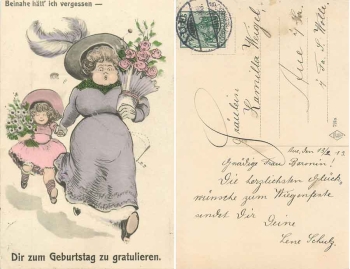 Beinahe hätt' ich vergessen —
Dir zum Geburtstag zu gratulieren.
Fräulein
Kamilla Wagel.
Aue i/Erz.
Aue, den 13/2 13.
Gnädige Frau Baronin!
Die herzlichsten Glück-
wünsche zum Wiegenfeste
sendet Dir Deine
Lene Schulz.